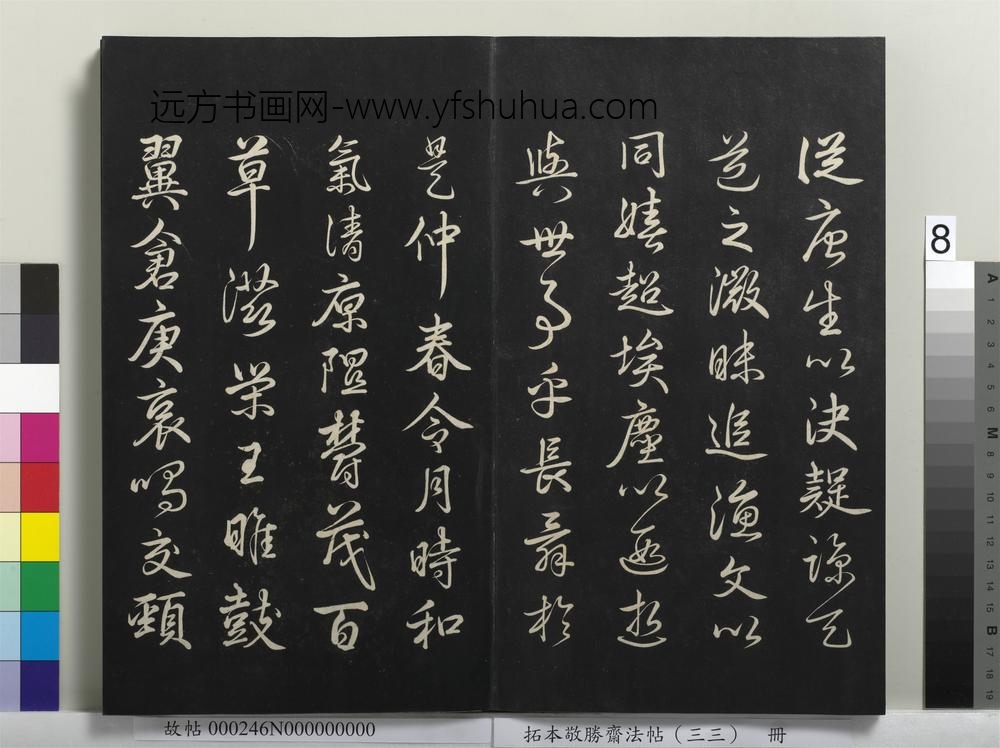 远方书画网-www.yfshuhua.com
從唐生以決疑諒天
道之微昧追漁父以
同嬉超埃塵以遐逝
與世事乎長辭於
是仲春令月時和
氣清原隰鬱茂百
草滋榮王雎鼓
翼倉庚哀鳴交頸
8
A 1 2 3 4 5 6 M 8 9 10 11 12 13 14 15 B 17 18 19
故帖 000246N000000000
拓本敬勝齋法帖（三三） 冊